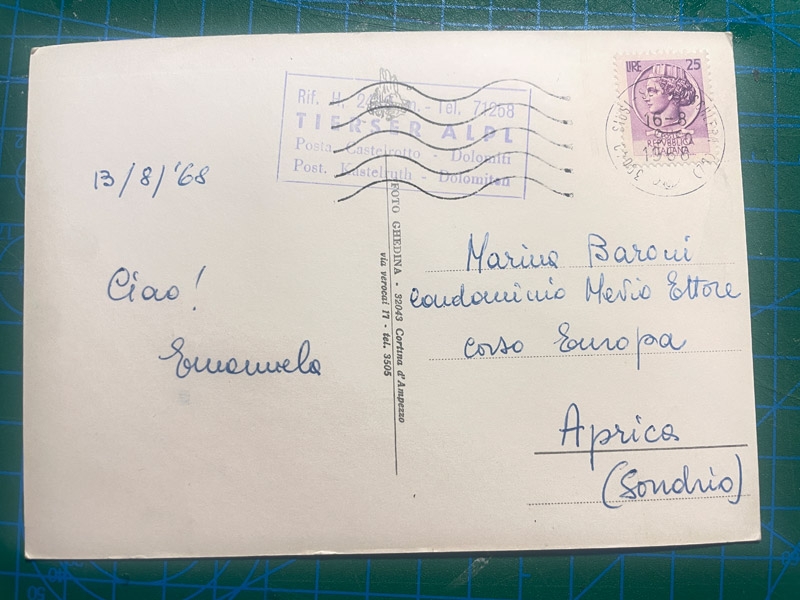 Rif. H. m. - Tel. 71258
TIERSER ALPL
Posta Castelrotto - Dolomiti
Post. Kastelruth - Dolomiten
LIRE 25
REPVBBLICA
ITALIANA
16-8
1968
13/8/'68
Ciao!
Emanuela
FOTO GHEDINA - 32043 Cortina d'Ampezzo
via verocai 17 - tel. 3505
Marina Baroni
condominio Medio Ettore
corso Europa
Aprica
(Sondrio)